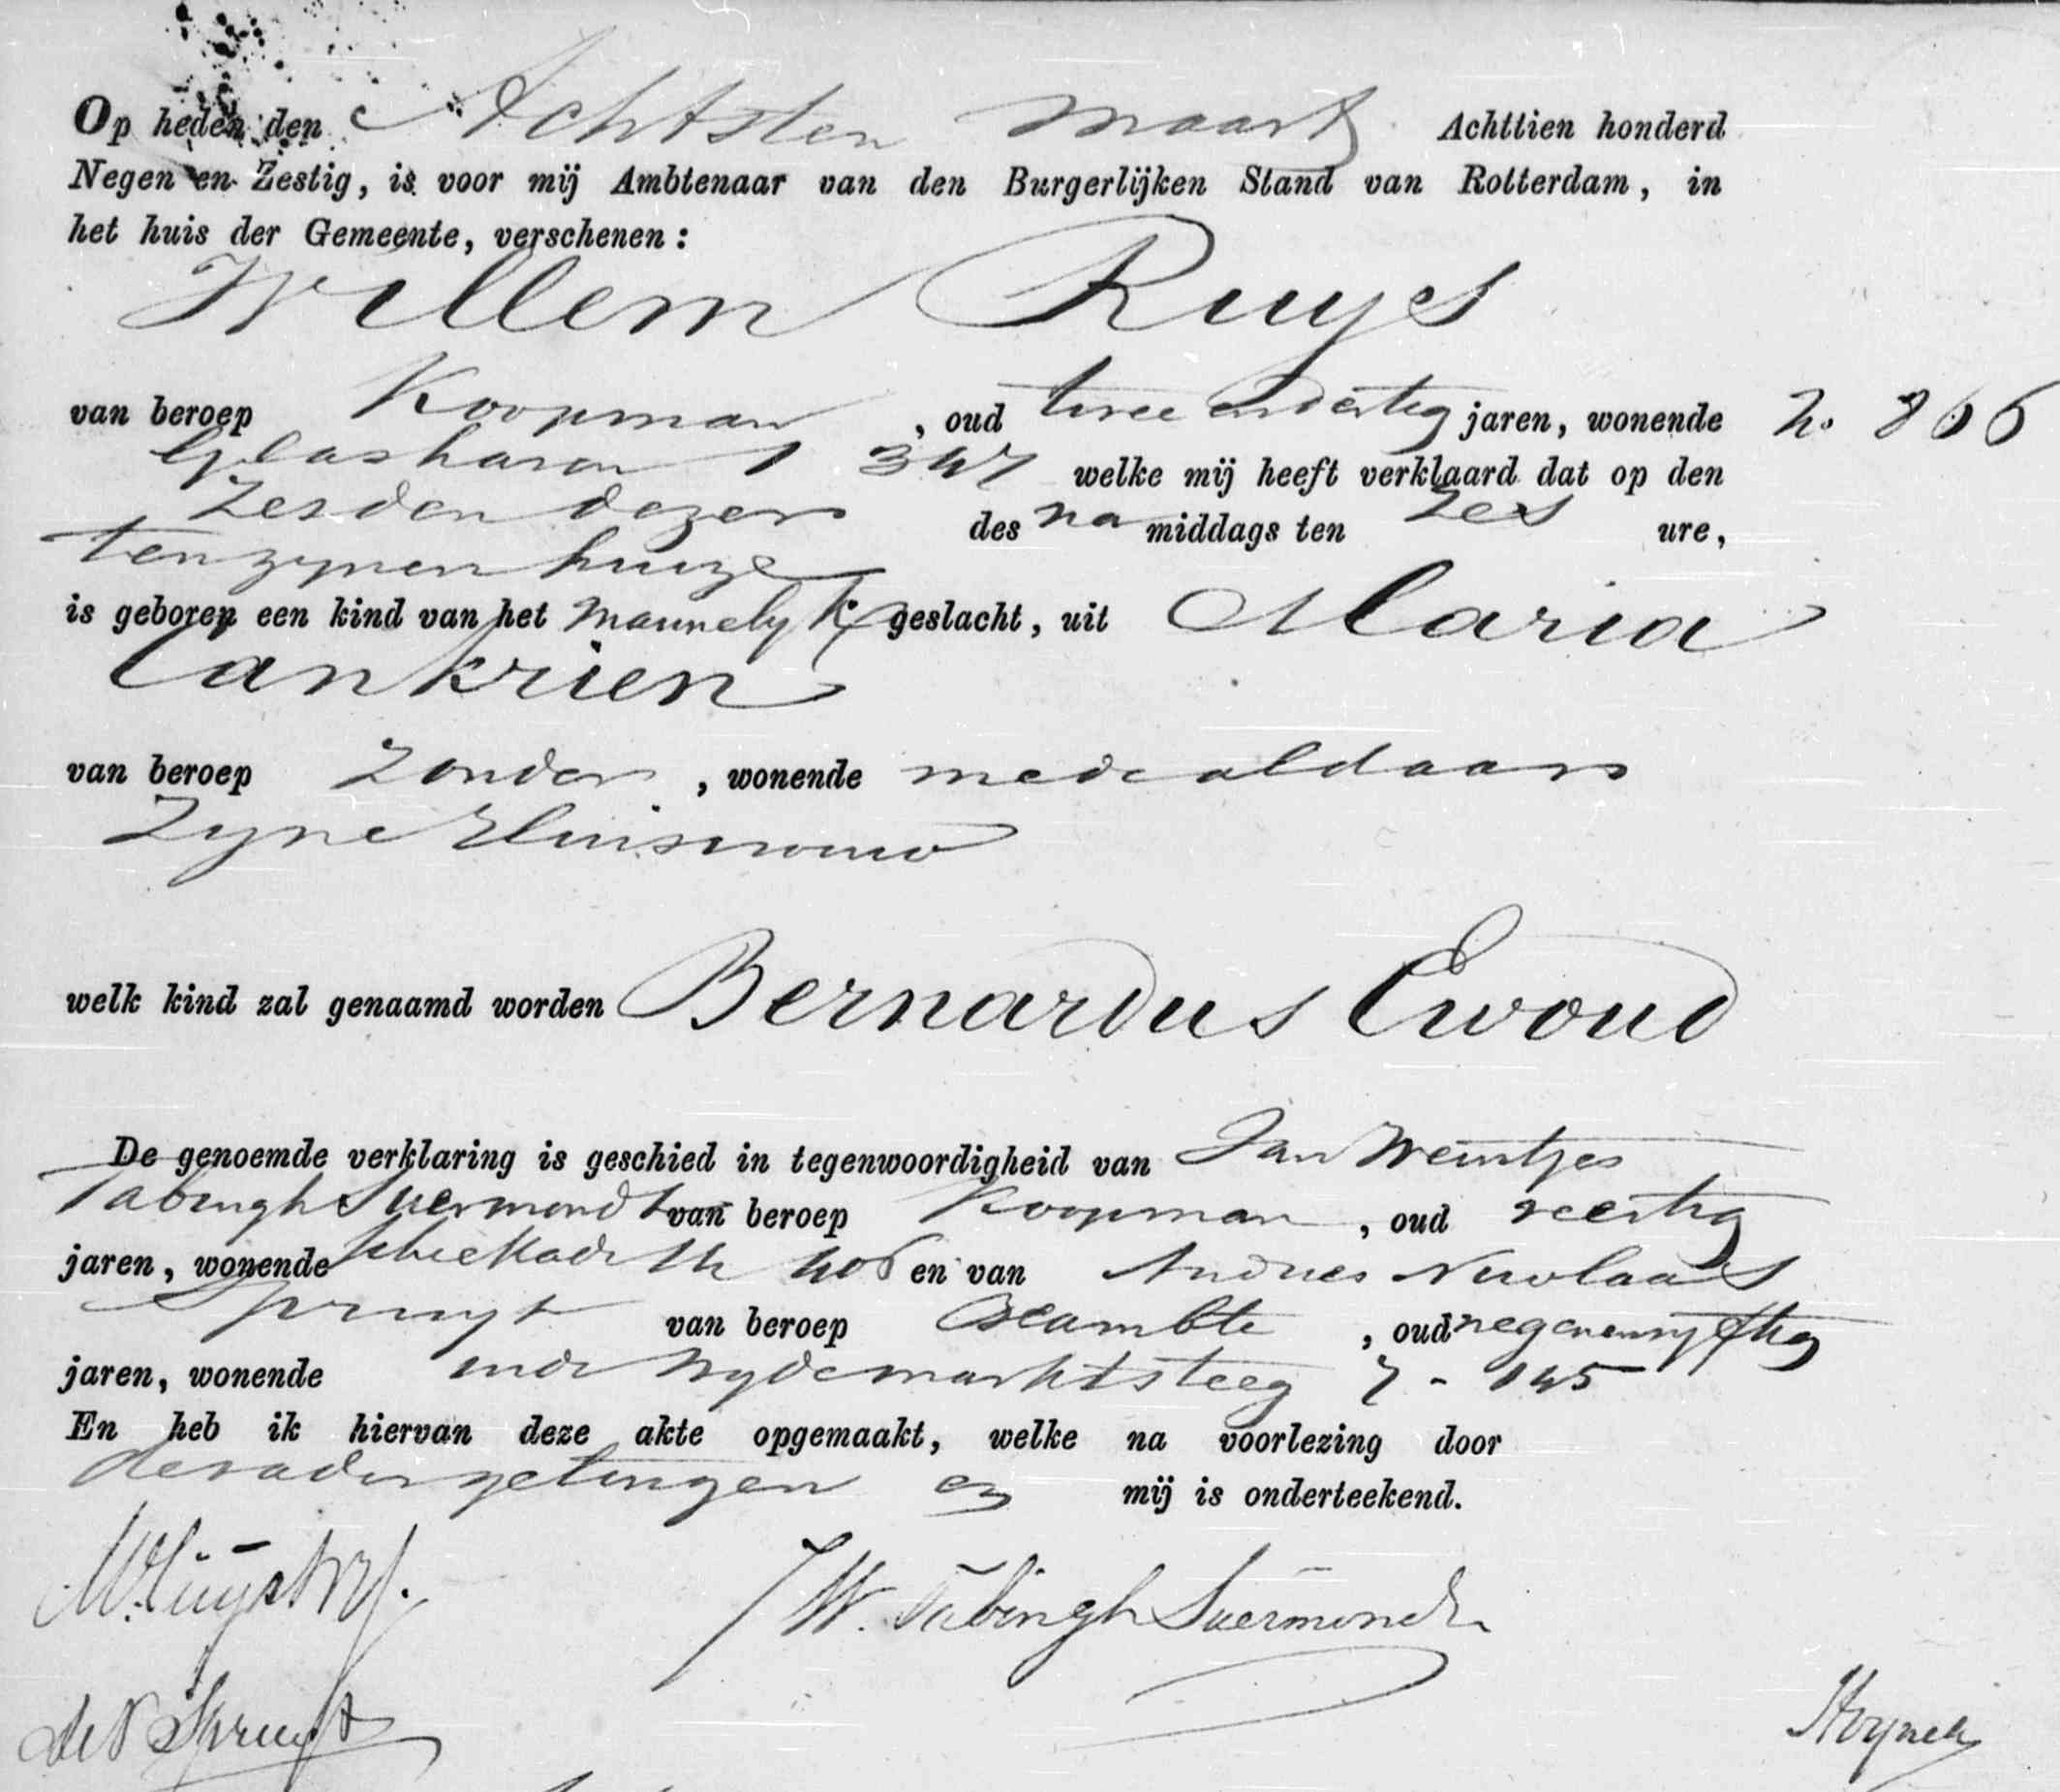 Op heden den Achtsten Maart Achttien honderd
Negen en Zestig, is voor mij Ambtenaar van den Burgerlijken Stand van Rotterdam, in
het huis der Gemeente, verschenen:
Willem Ruys
van beroep Koopman, oud twee en dertig jaren, wonende No 866
Glashaven 1 347 welke mij heeft verklaard dat op den
Zesden dezer des na middags ten Zes ure,
ten zynen huize
is geboren een kind van het Mannelyk geslacht, uit Maria
Cankrien
van beroep Zonder, wonende mede aldaar
Zyne Huisvrouw
welk kind zal genaamd worden Bernardus Ewoud
De genoemde verklaring is geschied in tegenwoordigheid van Jan Weintjes
Tabingh Suermondt van beroep Koopman, oud veertig
jaren, wonende Schiekade en van Andries Nicolaas
Spruyt van beroep Beambte, oud negenenvyftig
jaren, wonende in de Wydemarktsteeg 7 - 145
En heb ik hiervan deze akte opgemaakt, welke na voorlezing door
de vader getuigen en mij is onderteekend.
J W. Tabingh Suermondt
Spruyt